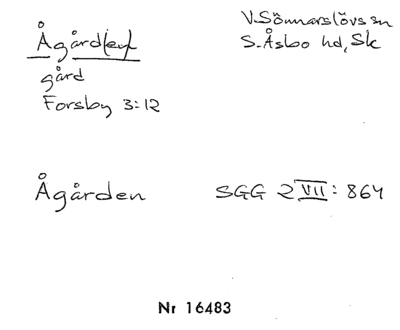 Ågård(en)
V. Sönnarslövs sn
S. Åsbo hd, Sk
gård
Forsby 3:12
Ågården SGG 2 VII: 864
Nr 16483